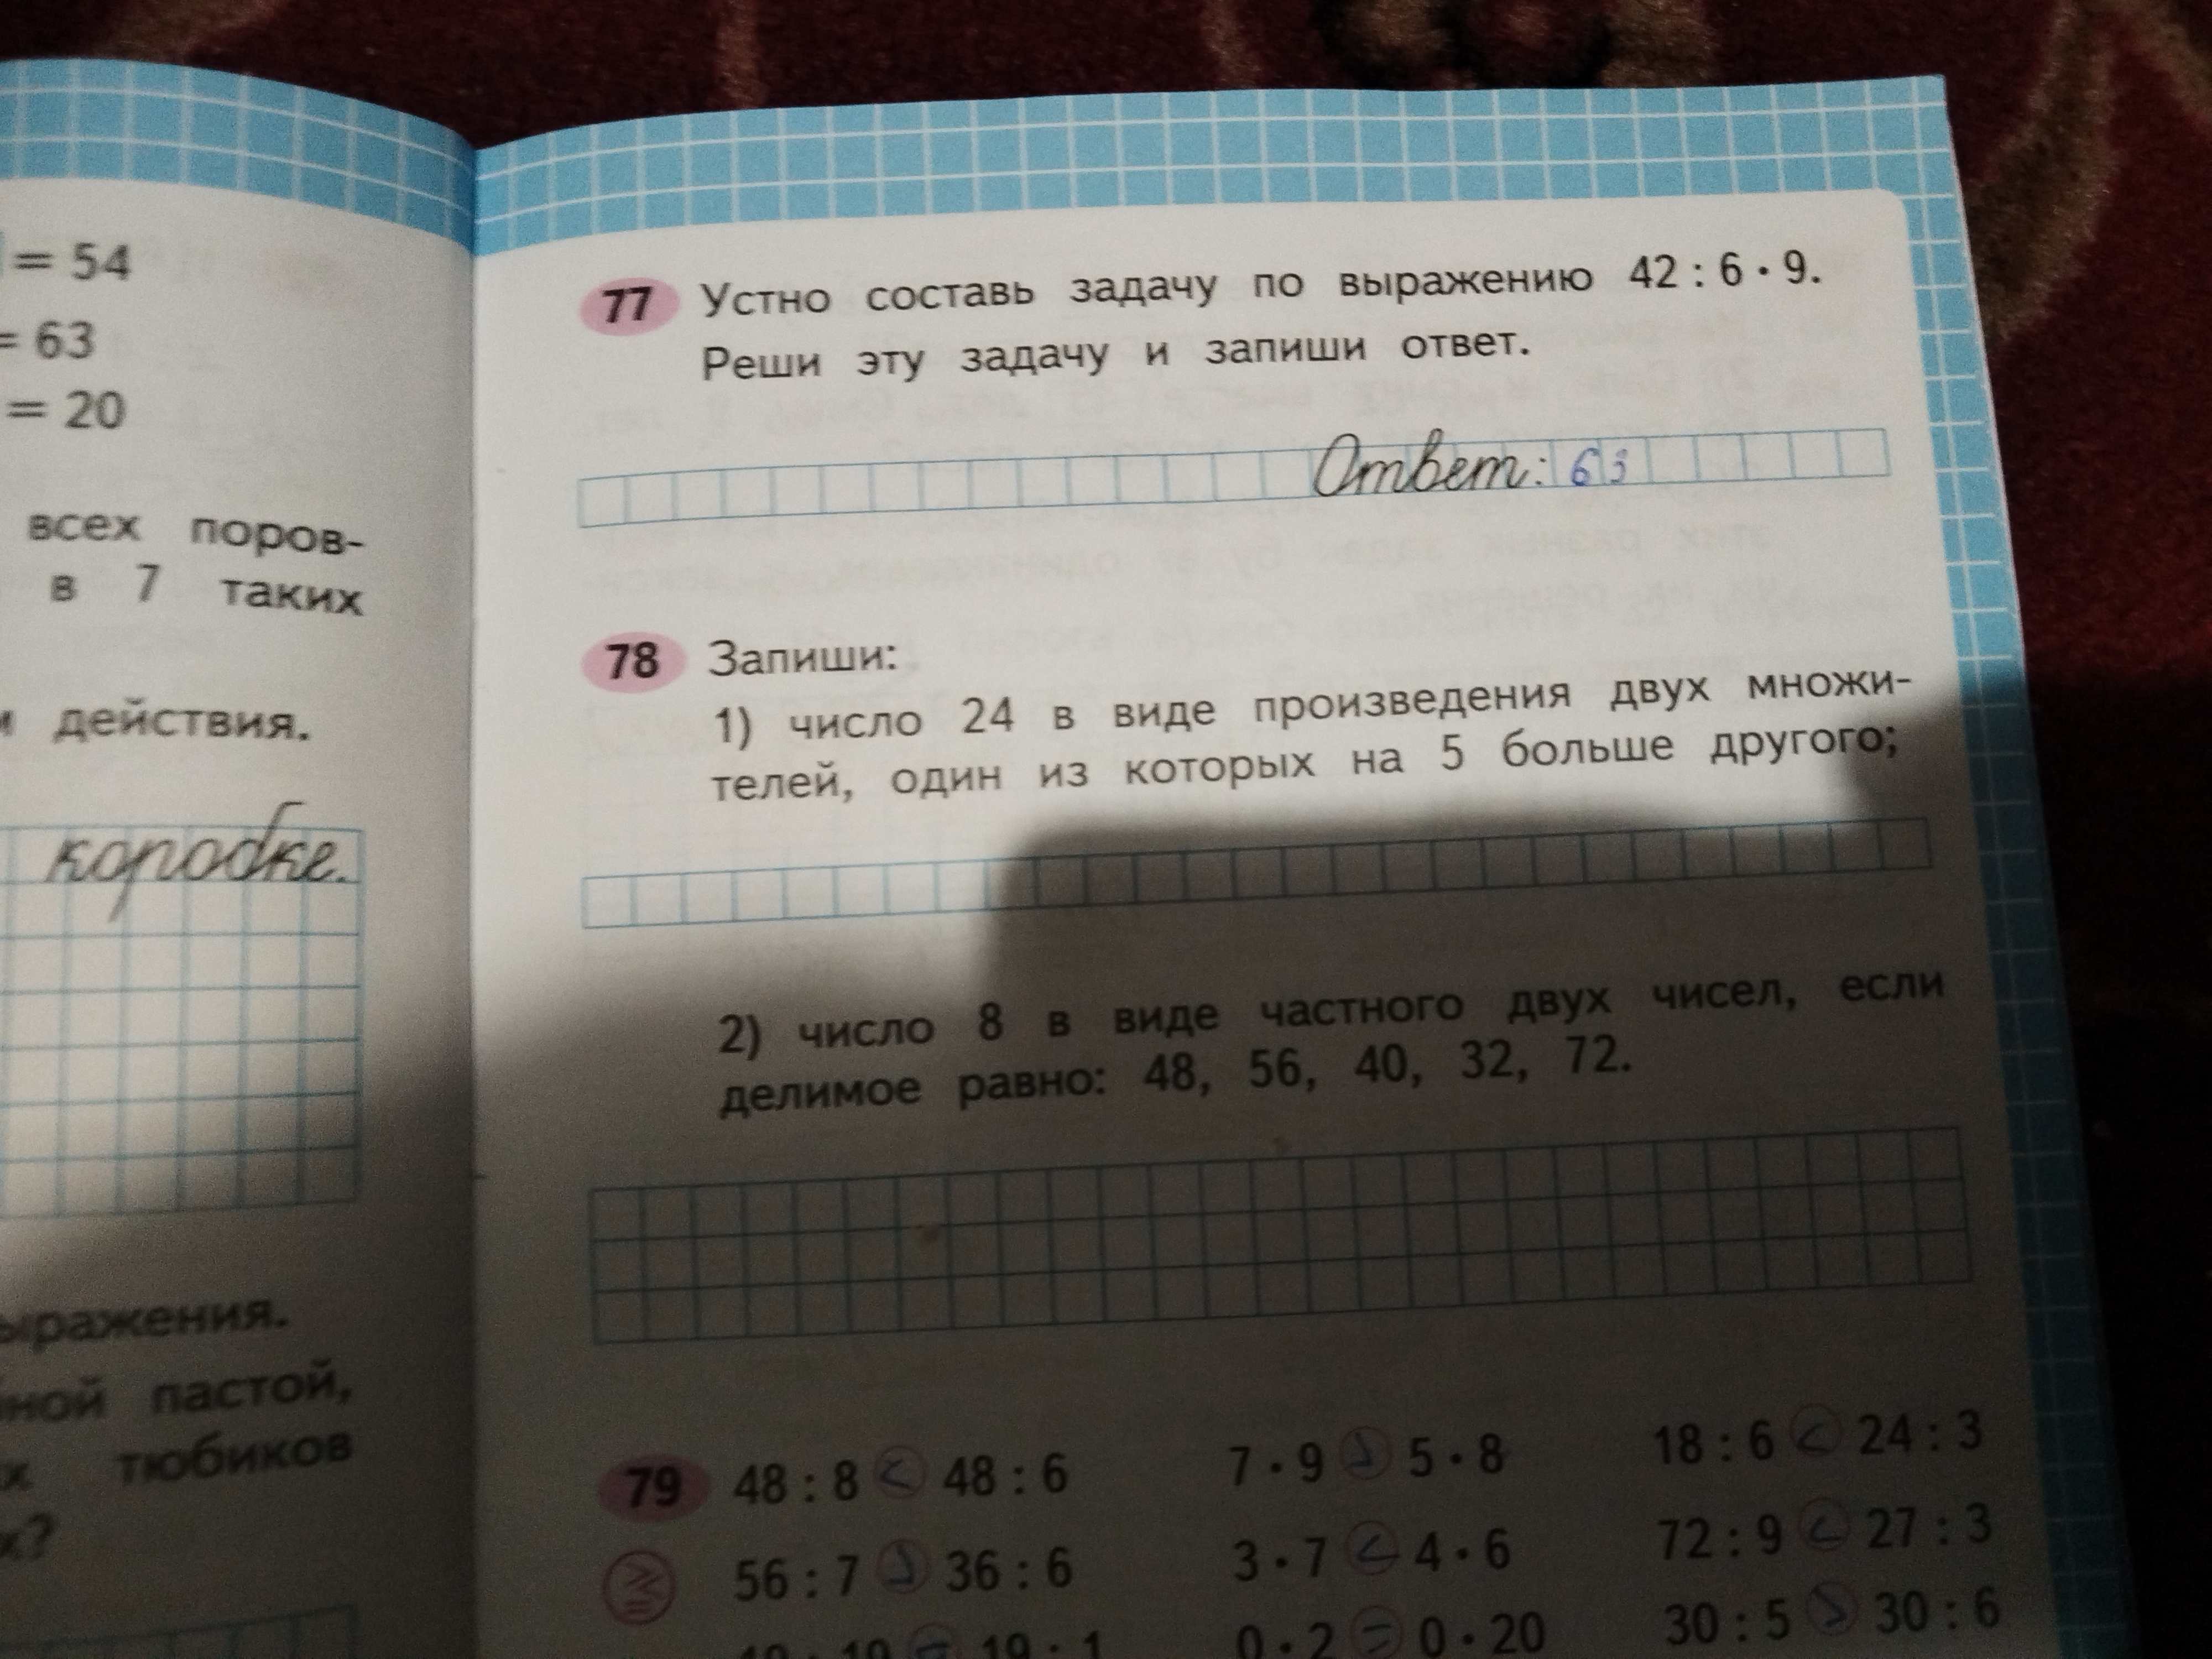 = 54
= 63
= 20
всех поров-
в 7 таких
действия.
коробке.
ыражения.
ной пастой,
х тюбиков
х?
77 Устно составь задачу по выражению 42 : 6 · 9.
Реши эту задачу и запиши ответ.
Ответ: 63
78 Запиши:
1) число 24 в виде произведения двух множи-
телей, один из которых на 5 больше другого;
2) число 8 в виде частного двух чисел, если
делимое равно: 48, 56, 40, 32, 72.
79 48 : 8 < 48 : 6 7 · 9 > 5 · 8 18 : 6 < 24 : 3
56 : 7 > 36 : 6 3 · 7 < 4 · 6 72 : 9 < 27 : 3
0 · 2 = 0 · 20 30 : 5 > 30 : 6